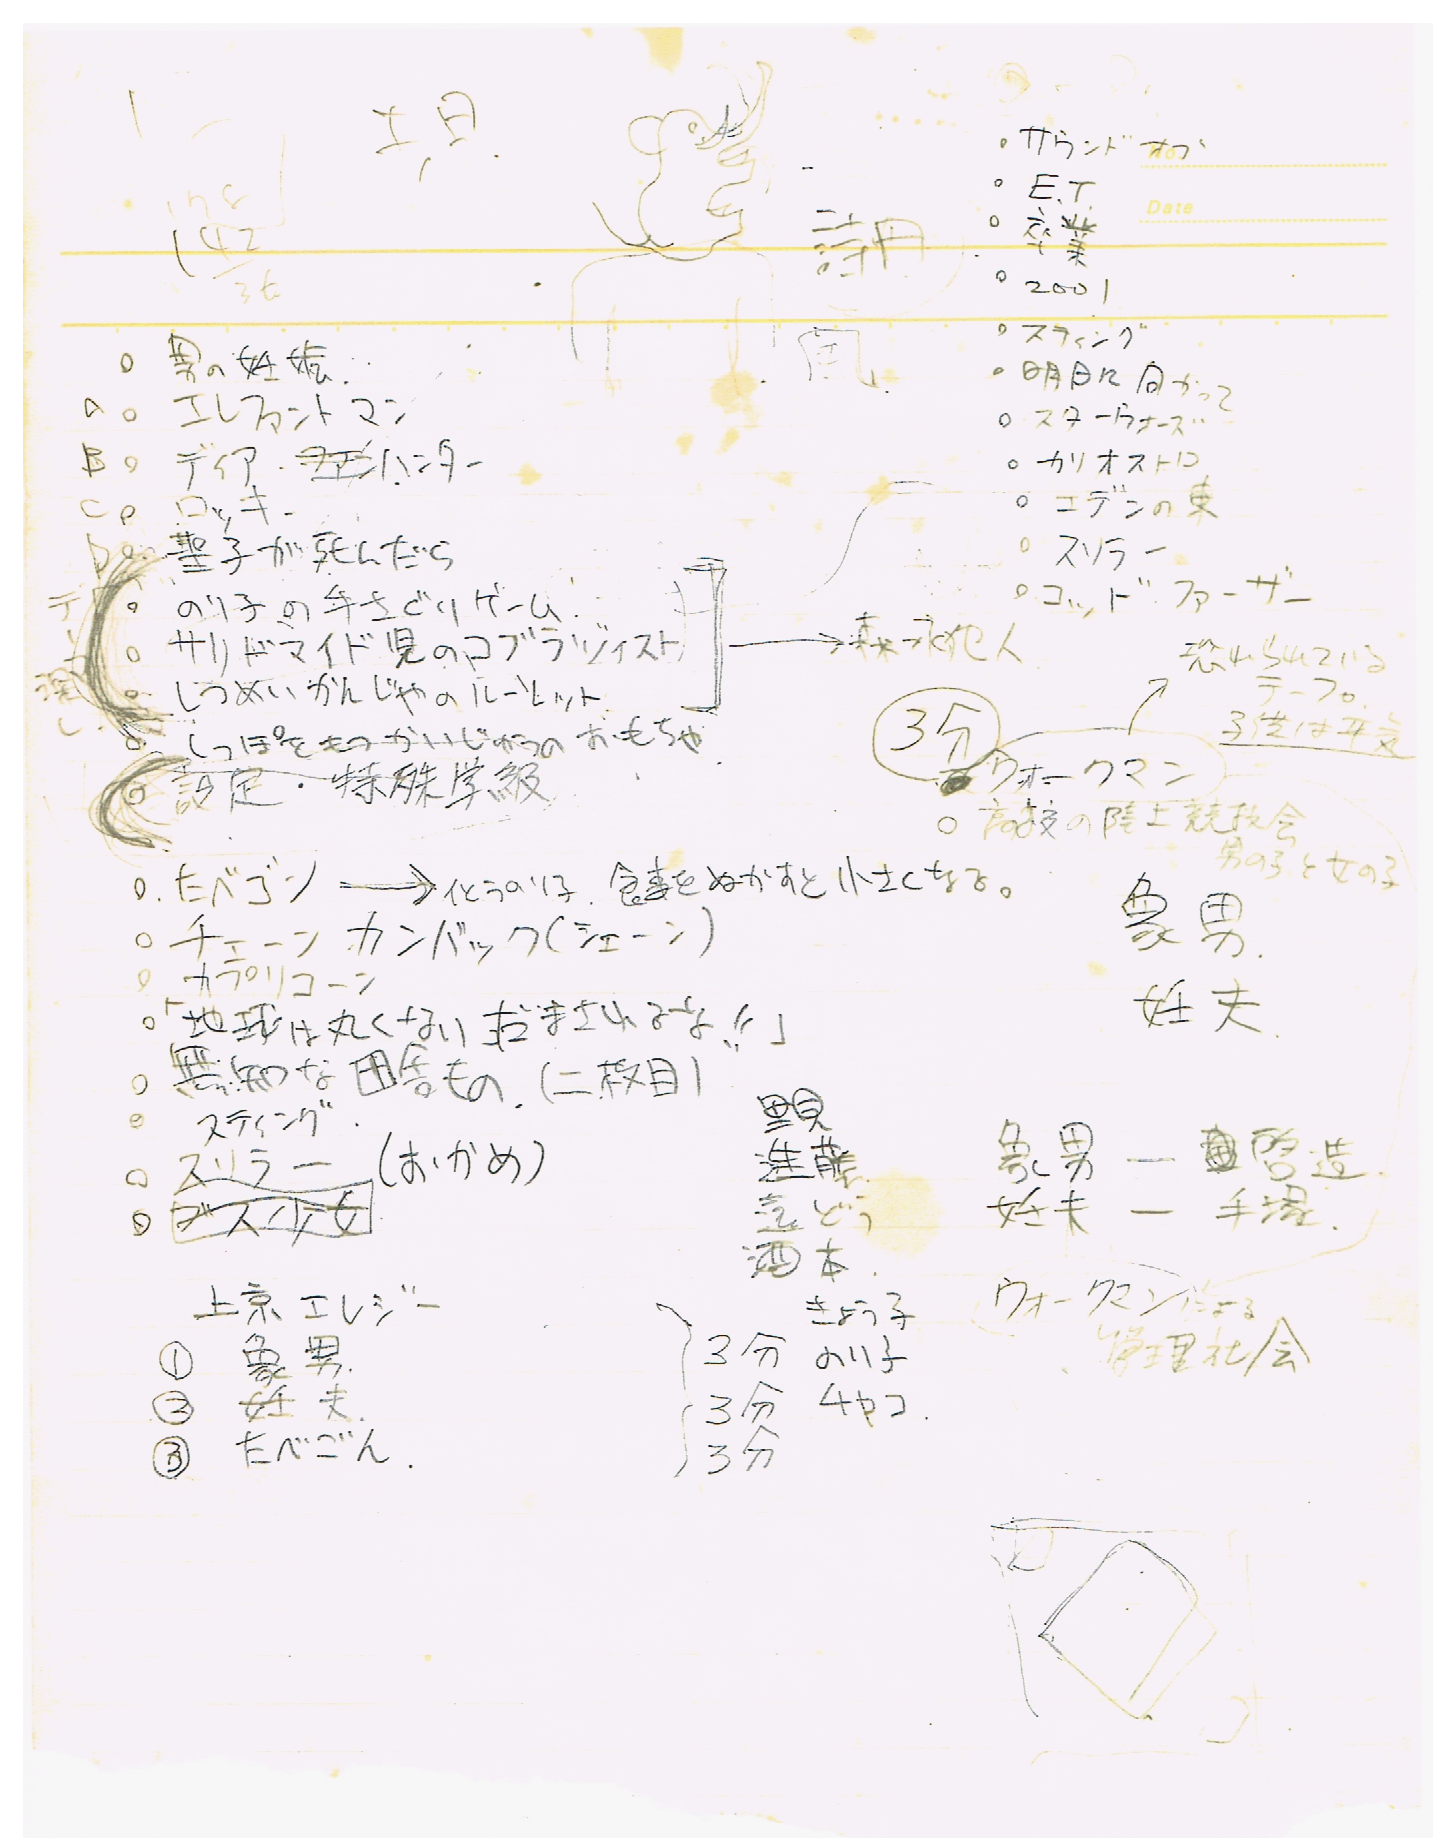 142
詩円
風
No.
Date
・サウンドオブ
・E.T.
・卒業
・2001
・スティング
・明日に向かって
・スターウォーズ
・カリオストロ
・エデンの東
・スリラー
・ゴッドファーザー
・男の妊娠
A ・エレファントマン
B ・ディア・ハンター
C ・ロッキー
D ・聖子が死んだら
・のり子の手さぐりゲーム
・サリドマイド児のコブラツイスト
・しつめいかんじゃのルーレット
・しっぽをもつかいじゅうのおもちゃ
・設定・特殊学級
恐れられている
テープ。
子供は平気
3分
ウォークマン
○ 高校の陸上競技会
男の子と女の子
・たべゴン → 化うのり子. 食事をぬかすと小さくなる。
○ チェーン カンバック(シェーン)
○ カプリコーン
○ 「地球は丸くない だまされるなよ!!」
○ 無知な田舎もの.(二枚目)
○ スティング.
○ スリラー (おかめ)
○ ブス少女
象男.
妊夫.
進藤
どう
酒本.
きょう子
のり子
チャコ.
象男 ー 啓造.
妊夫 ー 手塚.
ウォークマンによる
管理社会
上京エレジー
① 象男. 3分
② 妊夫. 3分
③ たべごん. 3分